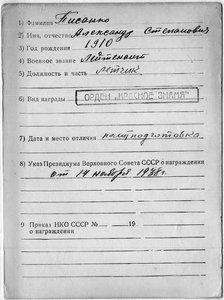 1) Фамилия Писанко
2) Имя, отчество Александр Степанович
3) Год рождения 1910
4) Военное звание Лейтенант
5) Должность и часть летчик
6) Вид награды ОРДЕН „КРАСНОЕ ЗНАМЯ"
7) Дата и место отличия
8) Указ Президиума Верховного Совета СССР о награждении
от 14 ноября 1938г.
9 Приказ НКО СССР № 19
о награждении